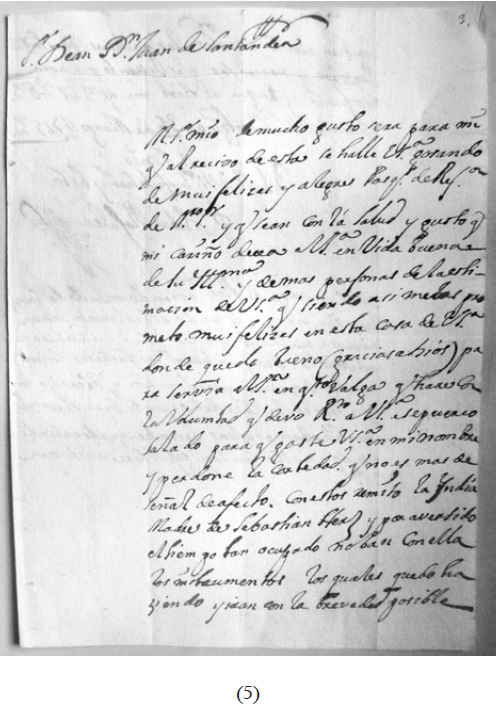 3.
Sr. Dean Dn. Juan de Santander
M. Sr. mio de mucho gusto sera para mi
q. al recivo de esta se halle Vsa. gosando
de mui felizes y alegres Pasqs. de Resn.
de y q. sean con la salud y gusto q.
mi cariño desea a Vsa. en Vida buena
de su y demas personas de la esti-
macion de Vsa. y siendo asi me las pro
meto mui felizes en esta casa de Vsa.
donde quedo bueno (gracias a Dios) pa
ra servir a Vsa. en qto. valga q. hare con
la voluntad q. devo Ro. a Vsa. ese puerco
salado para q. gaste Vsa. en mi nombre
y perdone la cortedad q. no es mas de
señal de afecto. Con estos remito la Yndia
Madre de Sebastian Herz. y por aver sido
el tiempo tan ocupado no ban con ella
los instrumentos los quales quedo ha
siendo y iran con la brevedad posible
(5)